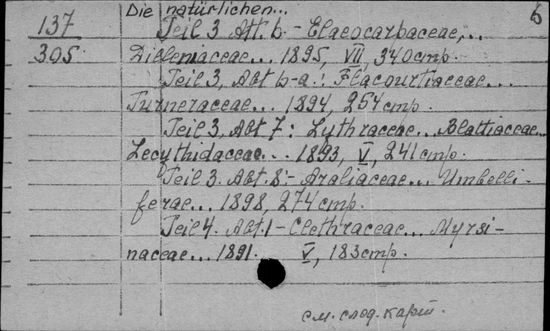 Die natürlichen... 6
137 Teil 3 Abt. 6 - Elaeocarbaceae,..
305 Dilleniaceae... 1895, VII, 340 стр.
Teil 3, Abt 6-a: Flacourtiaceae...
Turneraceae... 1894, 254 стр.
Teil 3, Abt 7: Lythraceae... Blattiaceae...
Lecythidaceae... 1893, V, 241 стр.
Teil 3. Abt. 8:- Araliaceae... Umbelli-
ferae... 1898, 274 стр.
Teil 4. Abt. 1 - Clethraceae... Myrsi-
naceae... 1891. V, 183 стр.
см. след. карт.